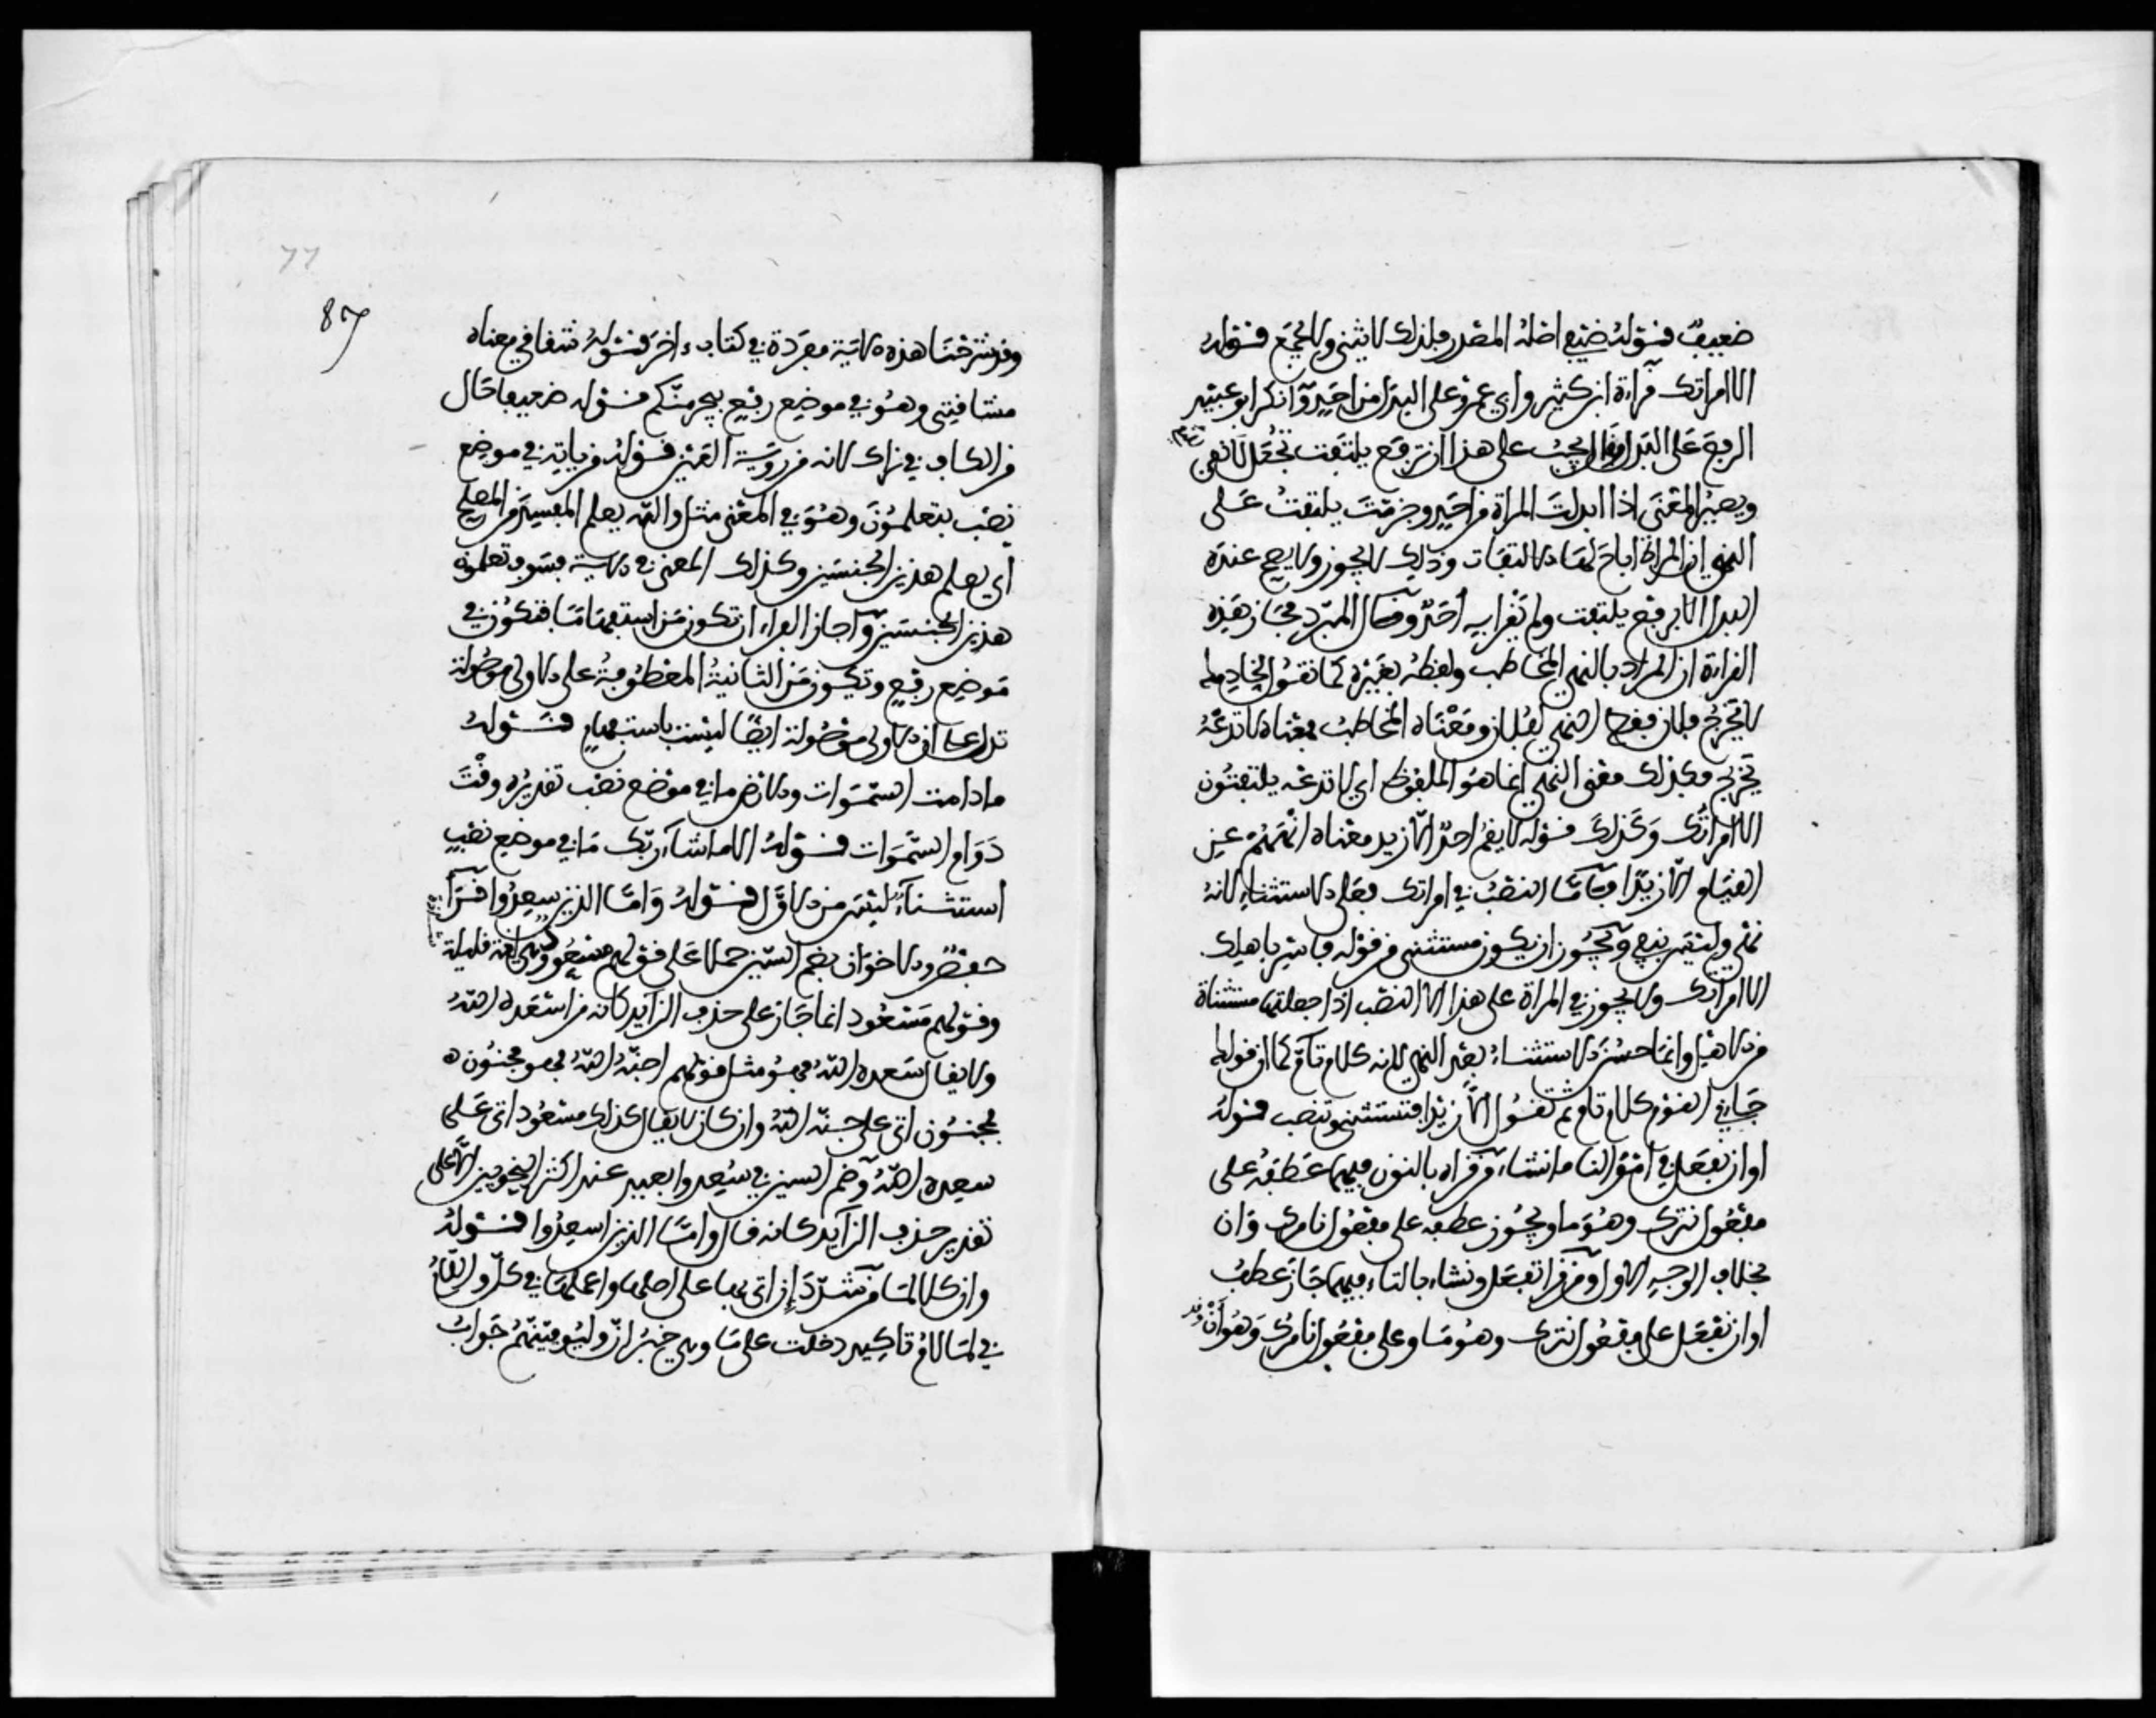 ضعيف قوله ضيفي اصله المصدر فلذلك لا يثنى ولا يجمع قوله
الا امراتك قراءة ابن كثير وابي عمرو على البدل من احد وانكر ابو عبيد
الرفع على البدل وقال يجب على هذا ان ترفع يلتفت تجعل لا نفي
ويصير المعنى اذا ابدلت المراة من احد وجزمت يلتفت على
النهي ان المراة اباح لها الالتفات وذلك لا يجوز ولا يصح عنده
البدل الا برفع يلتفت ولم يقرا به احد وقال المبرد مجاز هذه
القراءة ان المراد بالنهي المخاطب ولفظه لغيره كما تقول لخادمك
لا يخرج فلان فلفظ النهي لفلان ومعناه المخاطب فمعناه لا تدعه
يخرج فكذلك معنى النهي انما هو للملفوظ اي لا تدعهم يلتفتون
الا امراتك وكذلك قولك لا يقم احد الا زيد معناه انههم عن
القيام الا زيدا وقاما النصب في امراتك فعلى الاستثناء لانه
نهي وليس بنفي ويجوز ان يكون مستثنى من قوله فاسر باهلك
الا امراتك ولا يجوز في المراة على هذا الا النصب اذا جعلتها مستثناة
من الاهل وانما حسن الاستثناء بعد النهي لانه كلام تام كما ان قولك
جاءني القوم كلام تام ثم تقول الا زيدا فتستثني وتنصب قوله
او ان نفعل في اموالنا ما نشاء من قراه بالنون فيهما عطفه على
مفعول نترك وهو ما ولا يجوز عطفه على مفعول تامرك وان
بخلاف الوجه الاول ومن قرا تفعل وتشاء بالتاء فيهما جاز عطف
او ان تفعل على مفعول نترك وهو ما وعلى مفعول تامرك وهو ان
87
77
وقد شرحنا هذه الاية مفردة في كتاب ءاخر قوله شقاقي معناه
مشاقتي وهو في موضع رفع بيجرمنكم قوله ضعيفا حال
من الكاف في نراك لانه من روية العين قوله من ياتيه في موضع
نصب بتعلمون وهو في المعنى مثل والله يعلم المفسد من المصلح
اي يعلم هذين الجنسين وكذلك المعنى في الاية فسوف تعلمون
هذين الجنسين واجاز الفراء ان تكون من استفهاما فتكون في
موضع رفع وتكون من الثانية المعطوفة على الاولى موصولة
تدل على ان الاولى موصولة ايضا ليست باستفهام قوله
ما دامت السموات والارض ما في موضع نصب تقديره وقت
دوام السموات قوله الا ما شاء ربك ما في موضع نصب
استثناء ليس من الاول قوله واما الذين سعدوا قرا
حفص والاخوان بضم السين حملا على قولهم مسعود وهي لغة قليلة
وقولهم مسعود انما جاز على حذف الزايد كانه من اسعده الله
ولا يقال سعده الله فهو مثل قولهم اجنه الله فهو مجنون
فمجنون اتى على جنه الله وان كان لا يقال كذلك مسعود اتى على
سعده الله وضم السين في سعدوا بعيد عند اكثر النحويين الا على
تقدير حذف الزايد كانه قال واما الذين اسعدوا قوله
وان كلا لما من شدد ان اتى بها على اصلها واعملها في كل واللام
في لما لام تاكيد دخلت على ما وهي خبر ان وليوفينهم جواب